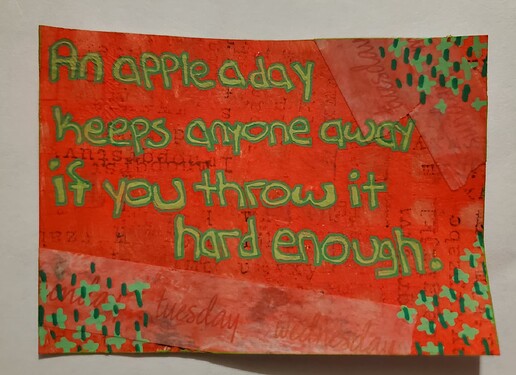 An apple a day
keeps anyone away
if you throw it
hard enough.
tuesday wednesday